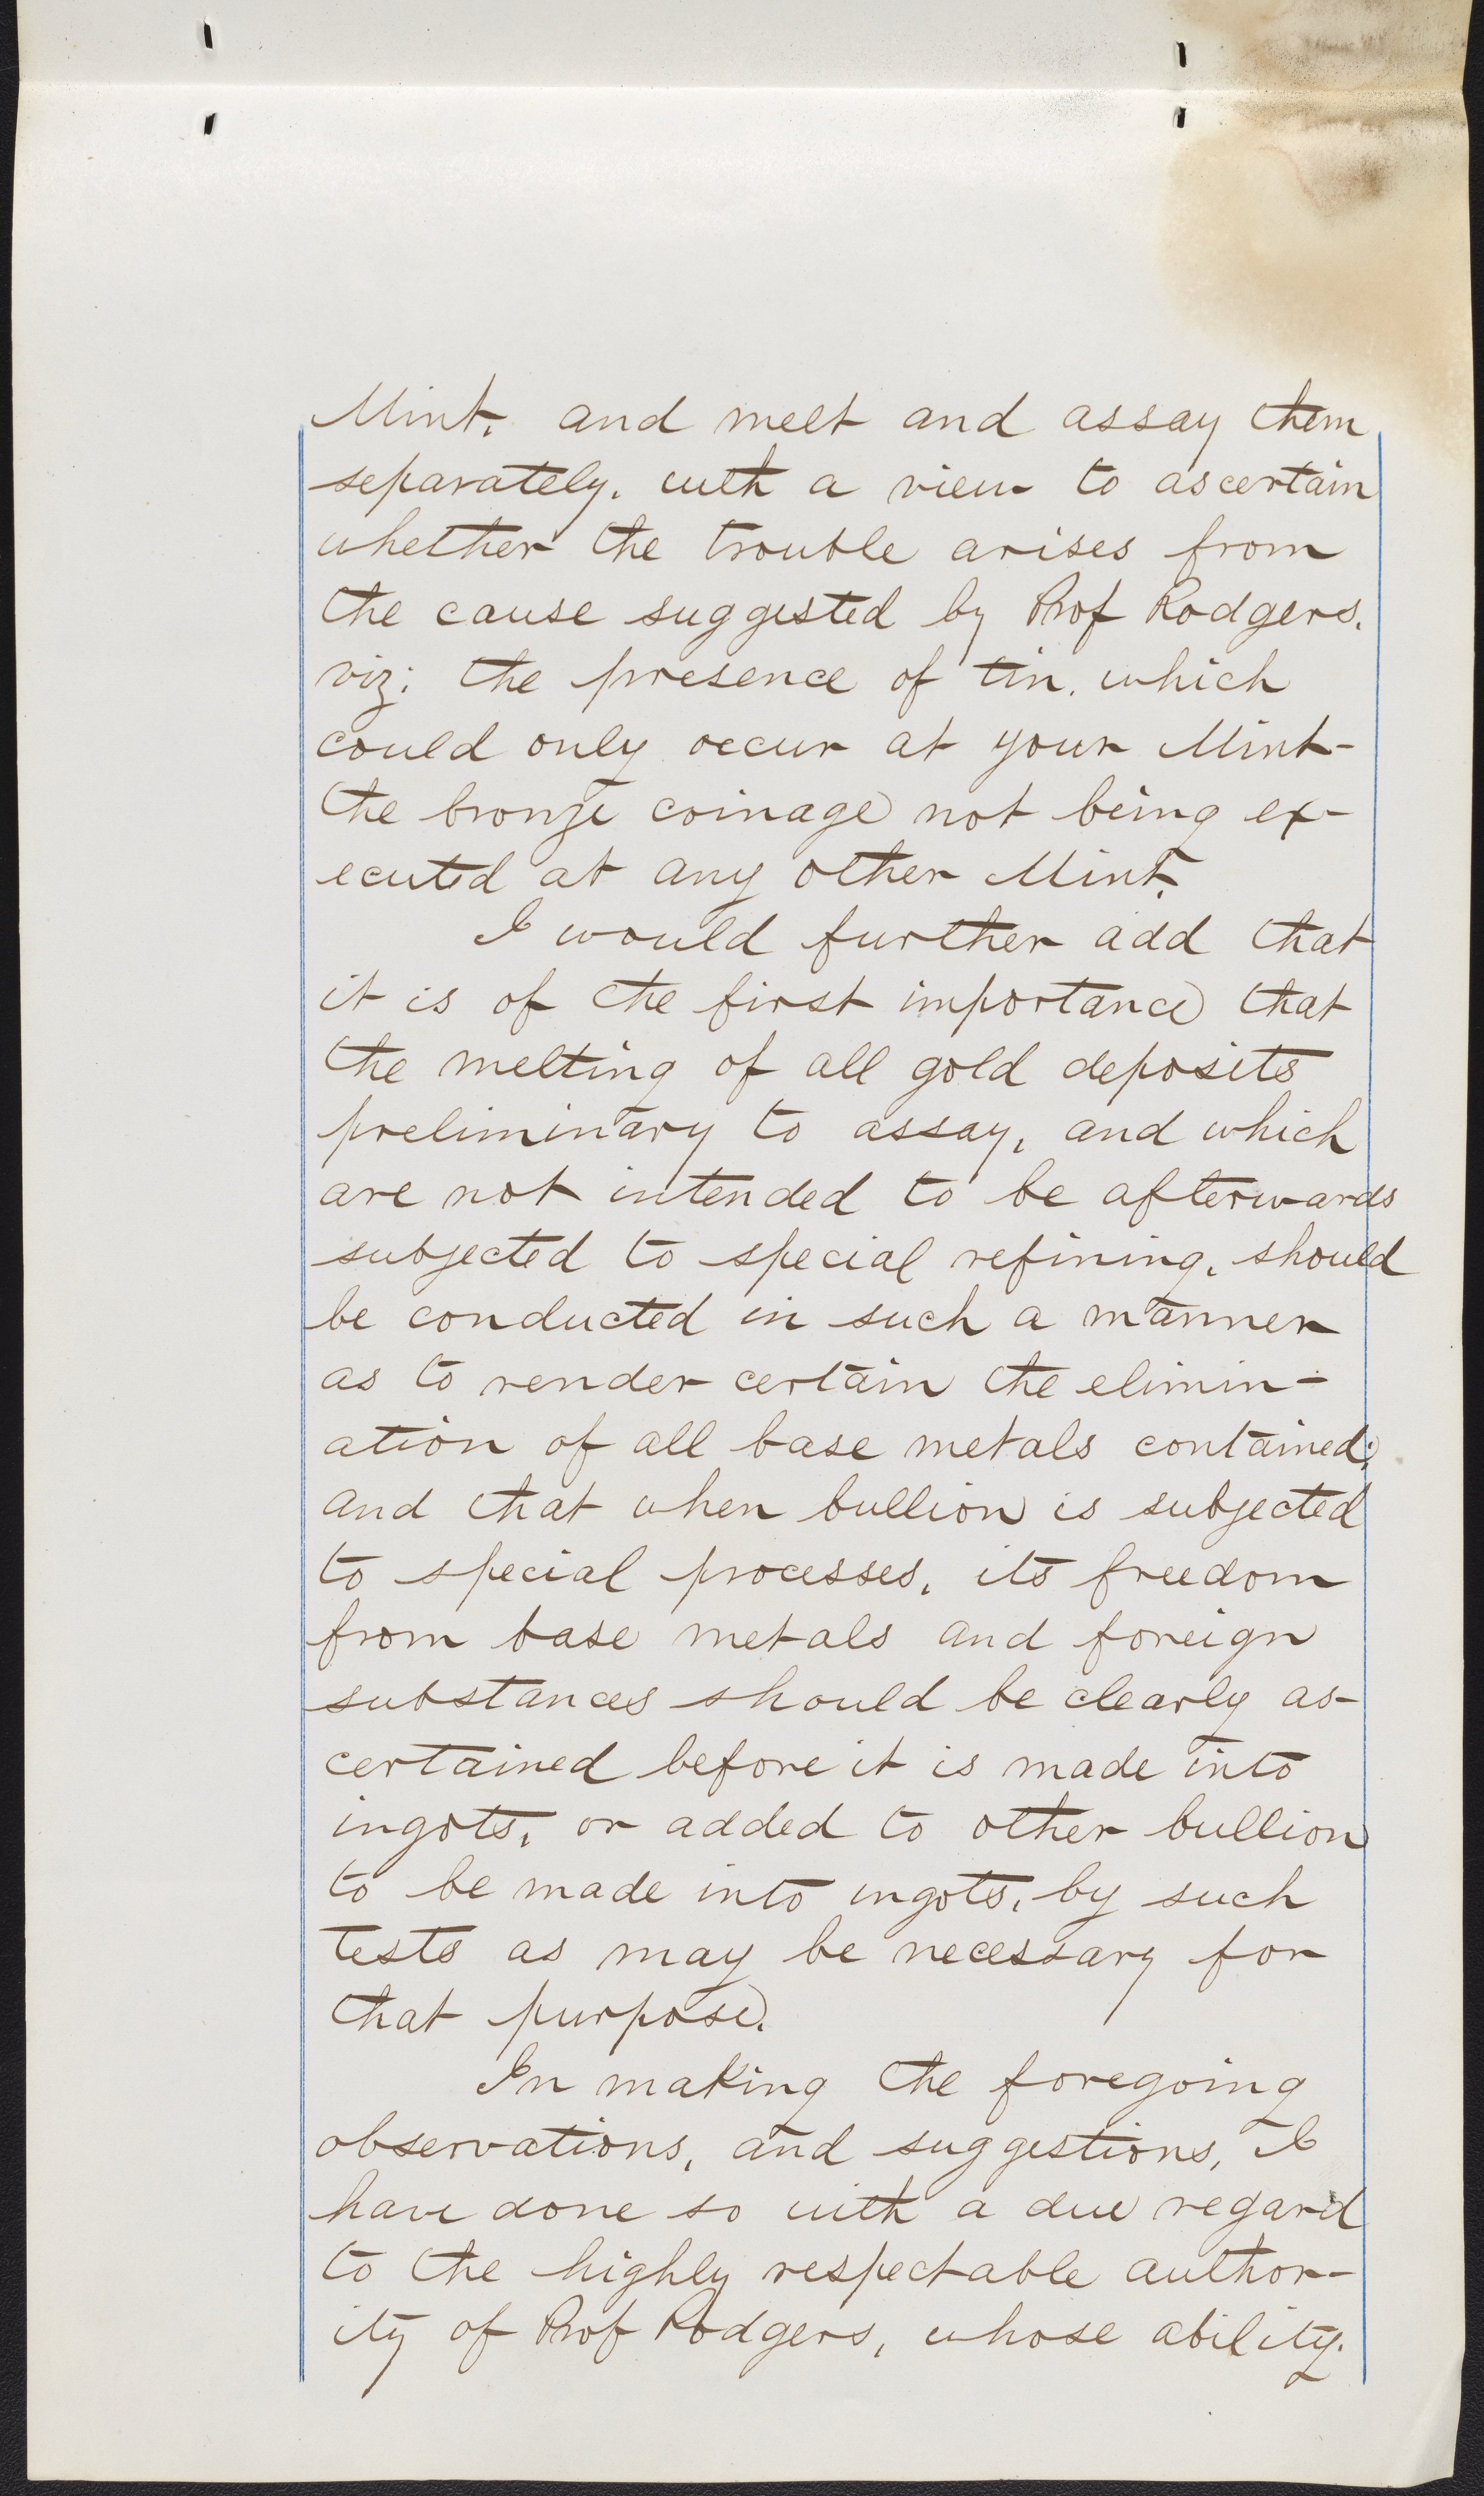 Mint, and melt and assay them
separately, with a view to ascertain
whether the trouble arises from
the cause suggested by Prof Rodgers,
viz; the presence of tin, which
could only occur at your Mint-
the bronze coinage not being ex-
ecuted at any other Mint.
I would further add that
it is of the first importance that
the melting of all gold deposits
preliminary to assay, and which
are not intended to be afterwards
subjected to special refining, should
be conducted in such a manner
as to render certain the elimin-
ation of all base metals contained;
and that when bullion is subjected
to special processes, its freedom
from base metals and foreign
substances should be clearly as-
certained before it is made into
ingots, or added to other bullion
to be made into ingots, by such
tests as may be necessary for
that purpose.
In making the foregoing
observations, and suggestions, I
have done so with a due regard
to the highly respectable author-
ity of Prof Rodgers, whose ability.